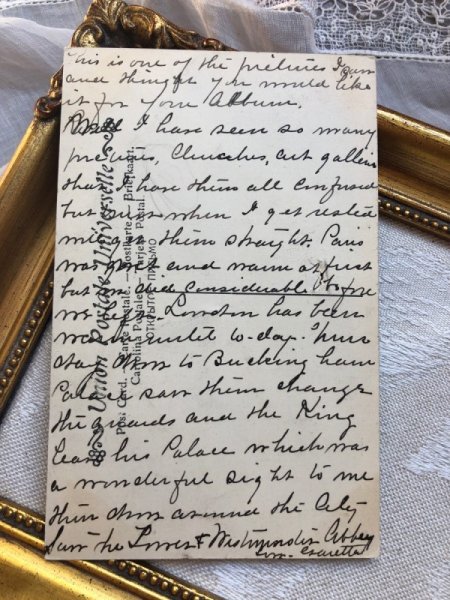 This is one of the pictures I saw
and thought you would like
it for your Album.
I have seen so many
pictures, Churches, art galleries
that I have them all confused
but when I get rested
will get them straight. Paris
was and warm at first
but considerable before
we London has been
warm until to-day.
to Buckingham
Palace saw them change
the guards and the King
leave his Palace which was
a wonderful sight to me
then around the City
Saw the Tower & Westminster Abbey
Union Postale Universelle
Post Card. — Carte Postale. — Postkarte. — Briefkaart.
Cartolina Postale. — Tarjeta Postal.
ОТКРЫТОЕ ПИСЬМО